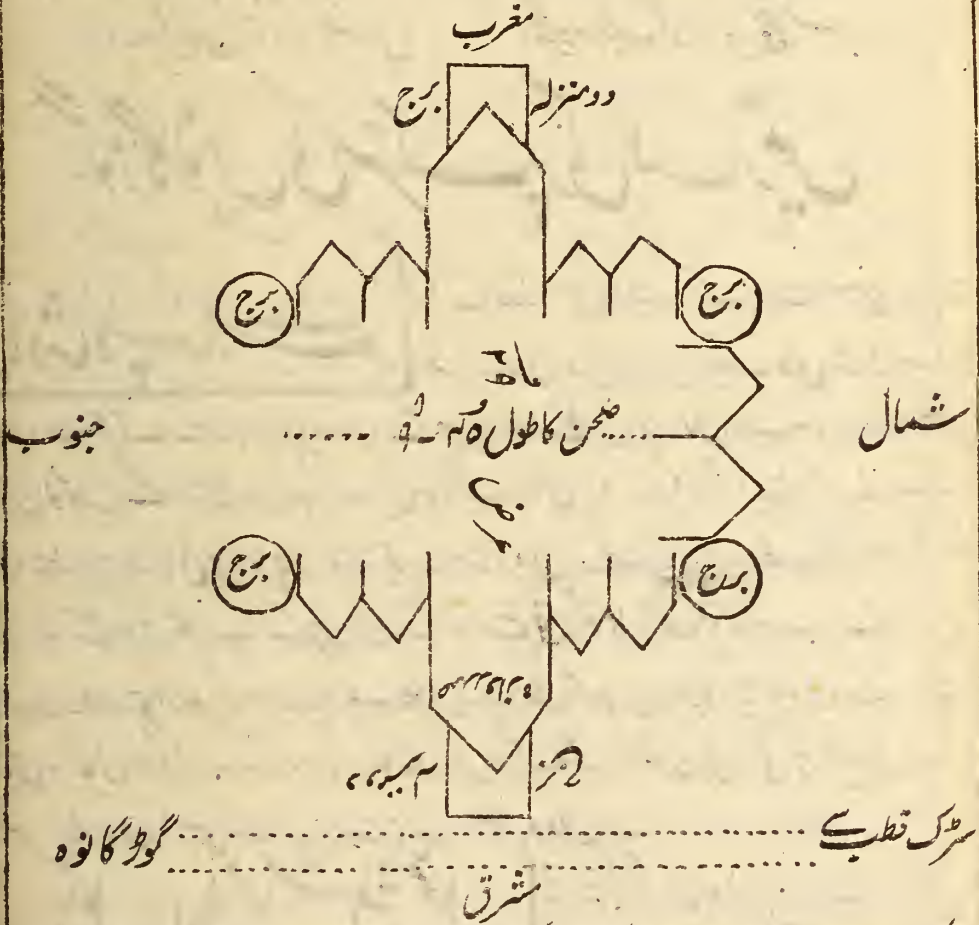 مغرب
دو منزلہ برج
برج برج
شمال صحن کا طول جنوب
برج برج
سڑک قطب سے گوڑگانوہ
مشرق